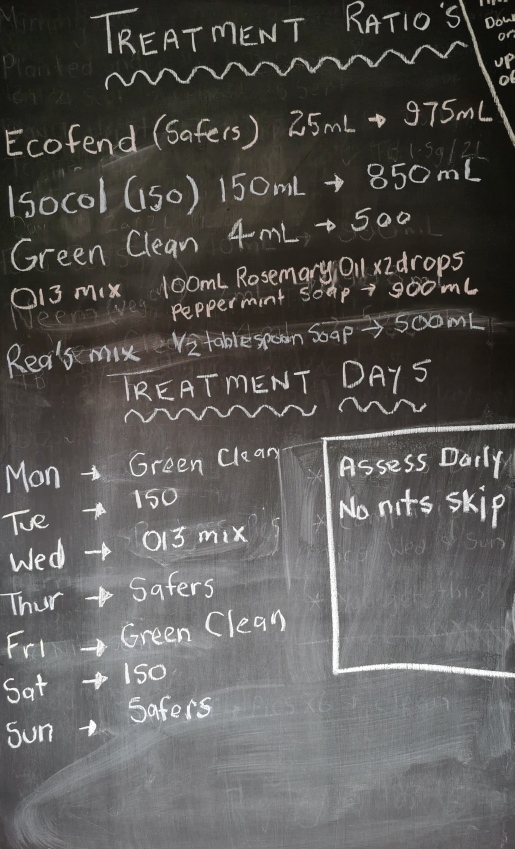 TREATMENT RATIO'S
Ecofend (Safers) 25mL → 975mL
Isocol (ISO) 150mL → 850mL
Green Clean 4mL → 500
O13 mix 100mL Rosemary Oil x2drops
Peppermint Soap → 900mL
Rea's mix 1/2 tablespoon Soap → 500mL
TREATMENT DAYS
Mon → Green Clean
Tue → ISO
Wed → O13 mix
Thur → Safers
Fri → Green Clean
Sat → ISO
Sun → Safers
Assess Daily
No nits skip
up